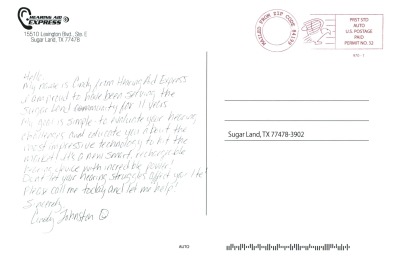 HEARING AID
EXPRESS
15510 Lexington Blvd., Ste. E
Sugar Land, TX 77478
Hello,
My name is Cindy from Hearing Aid Express
I am proud to have been serving the
Sugar Land community for 11 years
My goal is simple - to evaluate your hearing
challenges and educate you about the
most impressive technology to hit the
market! It's a new smart, rechargeable
hearing device with incredible power!
Don't let your hearing struggles affect your life!
Please call me today and let me help!
Sincerely,
Cindy Johnston
MAILED FROM ZIP CODE
PRST STD
AUTO
U.S. POSTAGE
PAID
PERMIT NO. 52
Sugar Land, TX 77478-3902
AUTO